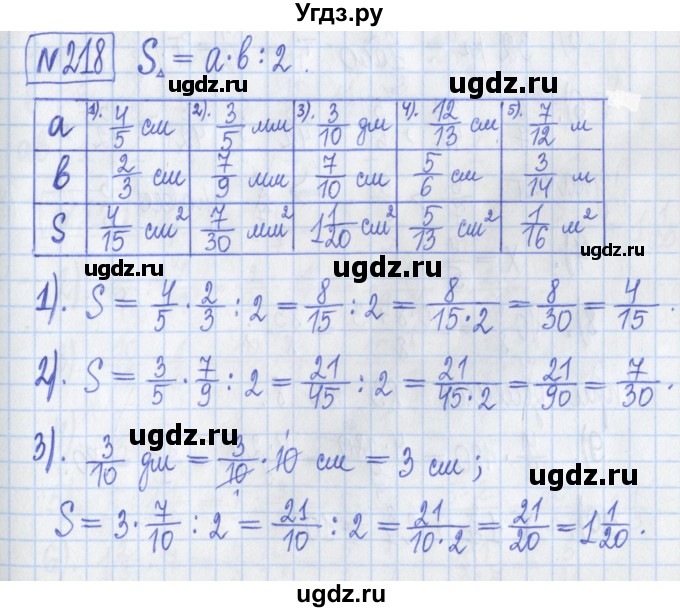 Угдз.ру
№218 S△ = a·b:2.
ugdz.ru ugdz.ru
a 1). 4/5 см 2). 3/5 мм 3). 3/10 дм 4). 12/13 см 5). 7/12 м
b 2/3 см 7/9 мм 7/10 см 5/6 см 3/14 м
ugdz.ru ugdz.ru
S 4/15 см² 7/30 мм² 1 1/20 см² 5/13 см² 1/16 м²
ugdz.ru ugdz.ru
1). S = 4/5 · 2/3 : 2 = 8/15 : 2 = 8/(15·2) = 8/30 = 4/15.
ugdz.ru ugdz.ru
2). S = 3/5 · 7/9 : 2 = 21/45 : 2 = 21/(45·2) = 21/90 = 7/30.
ugdz.ru
3). 3/10 дм = 3/10 · 10 см = 3 см;
ugdz.ru ugdz.ru
S = 3 · 7/10 : 2 = 21/10 : 2 = 21/(10·2) = 21/20 = 1 1/20.
ugdz.ru ugdz.ru